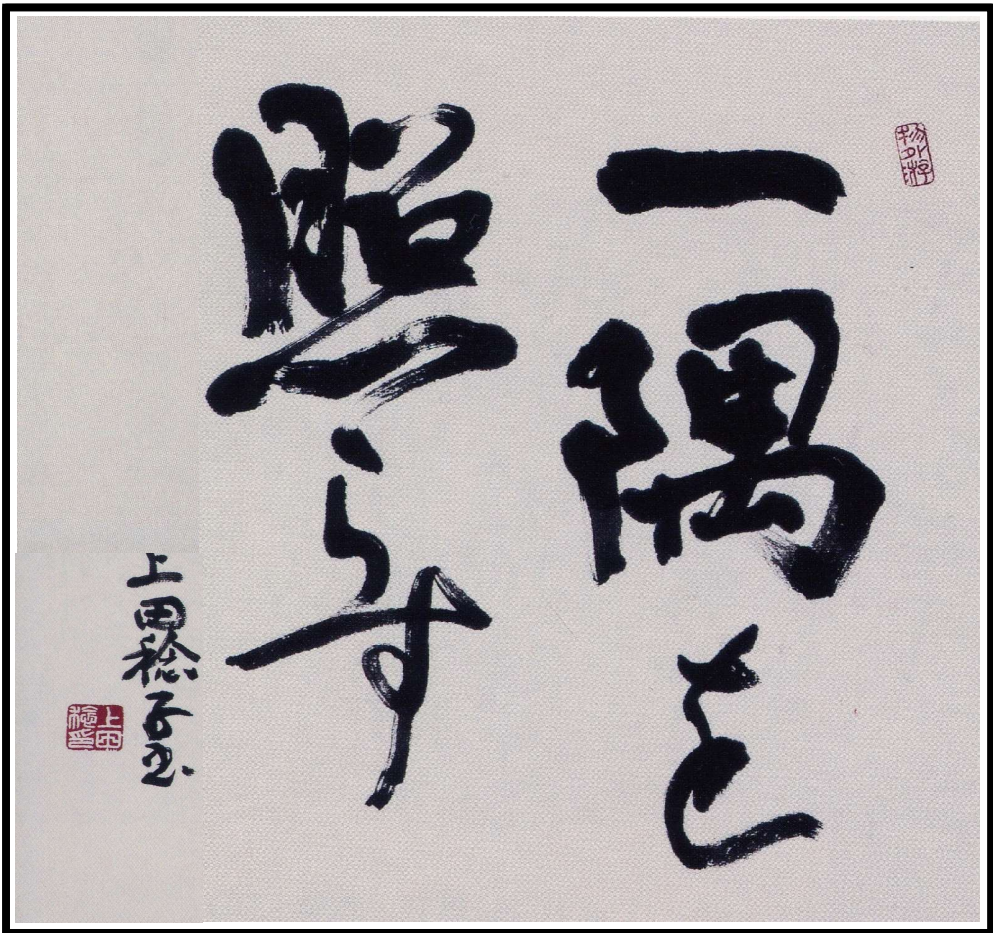 一隅を
照らす
上田稔子書